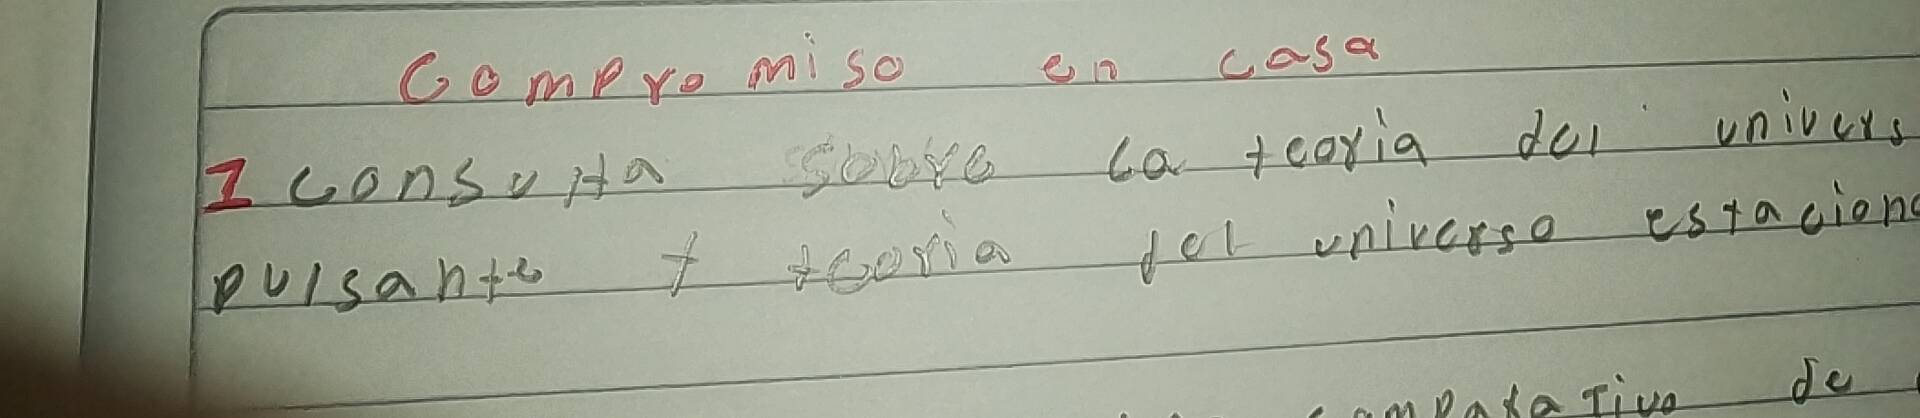 Compromiso en casa
1 consulta sobre la teoria del univers
pulsante y teoria del universo estacion
comparativo de